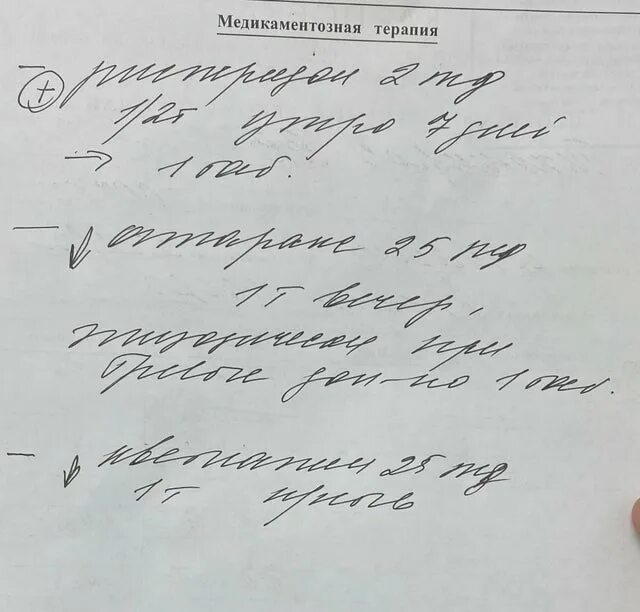 Медикаментозная терапия
– рисперидон 2 мг
⊕ 1/2т утро 7 дней
→ 1 таб.
– ↓ атаракс 25 мг
1т вечер,
эпизодически при
тревоге доп-но 1 таб.
– ↓ кветиапин 25 мг
1т н/ночь